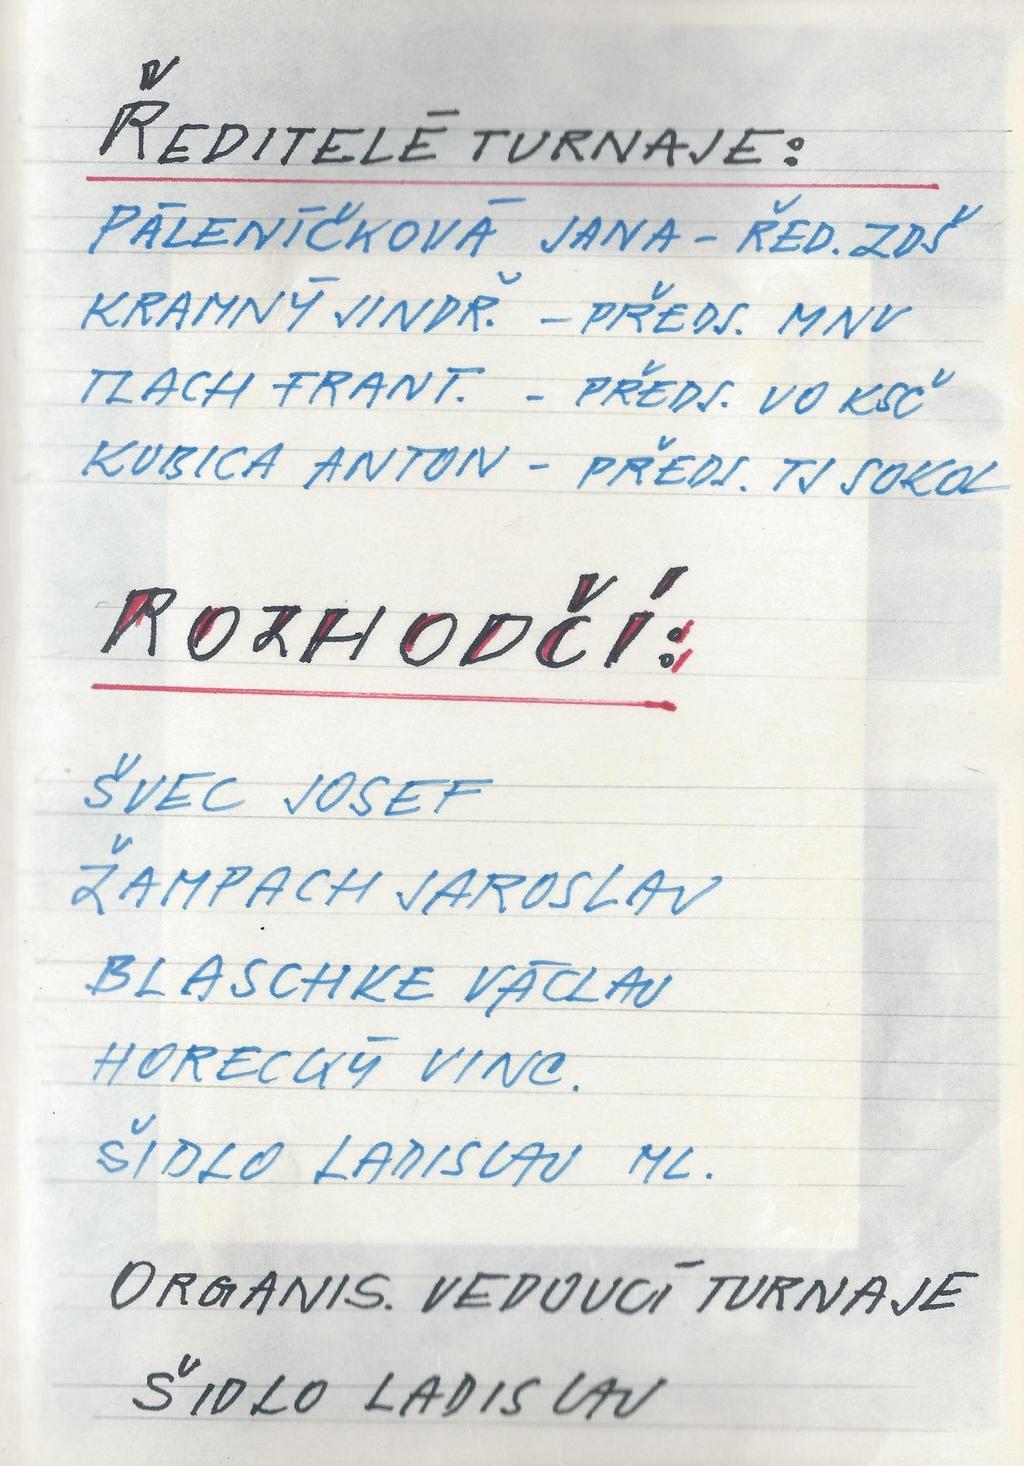 ŘEDITELÉ TURNAJE:
PÁLENÍČKOVÁ JANA - ŘED. ZDŠ
KRAMNÝ JINDŘ. - PŘEDS. MNV
TLACH FRANT. - PŘEDS. VO KSČ
KUBICA ANTON - PŘEDS. TJ SOKOL
ROZHODČÍ:
ŠVEC JOSEF
ŽAMPACH JAROSLAV
BLASCHKE VÁCLAV
HORECKÝ VINC.
ŠIDLO LADISLAV ML.
ORGANIS. VEDOUCÍ TURNAJE
ŠIDLO LADISLAV